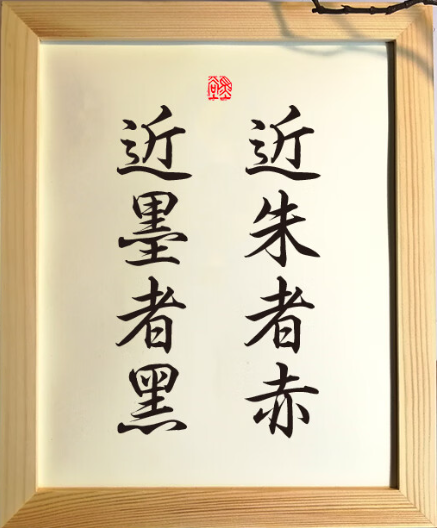 近朱者赤
近墨者黑